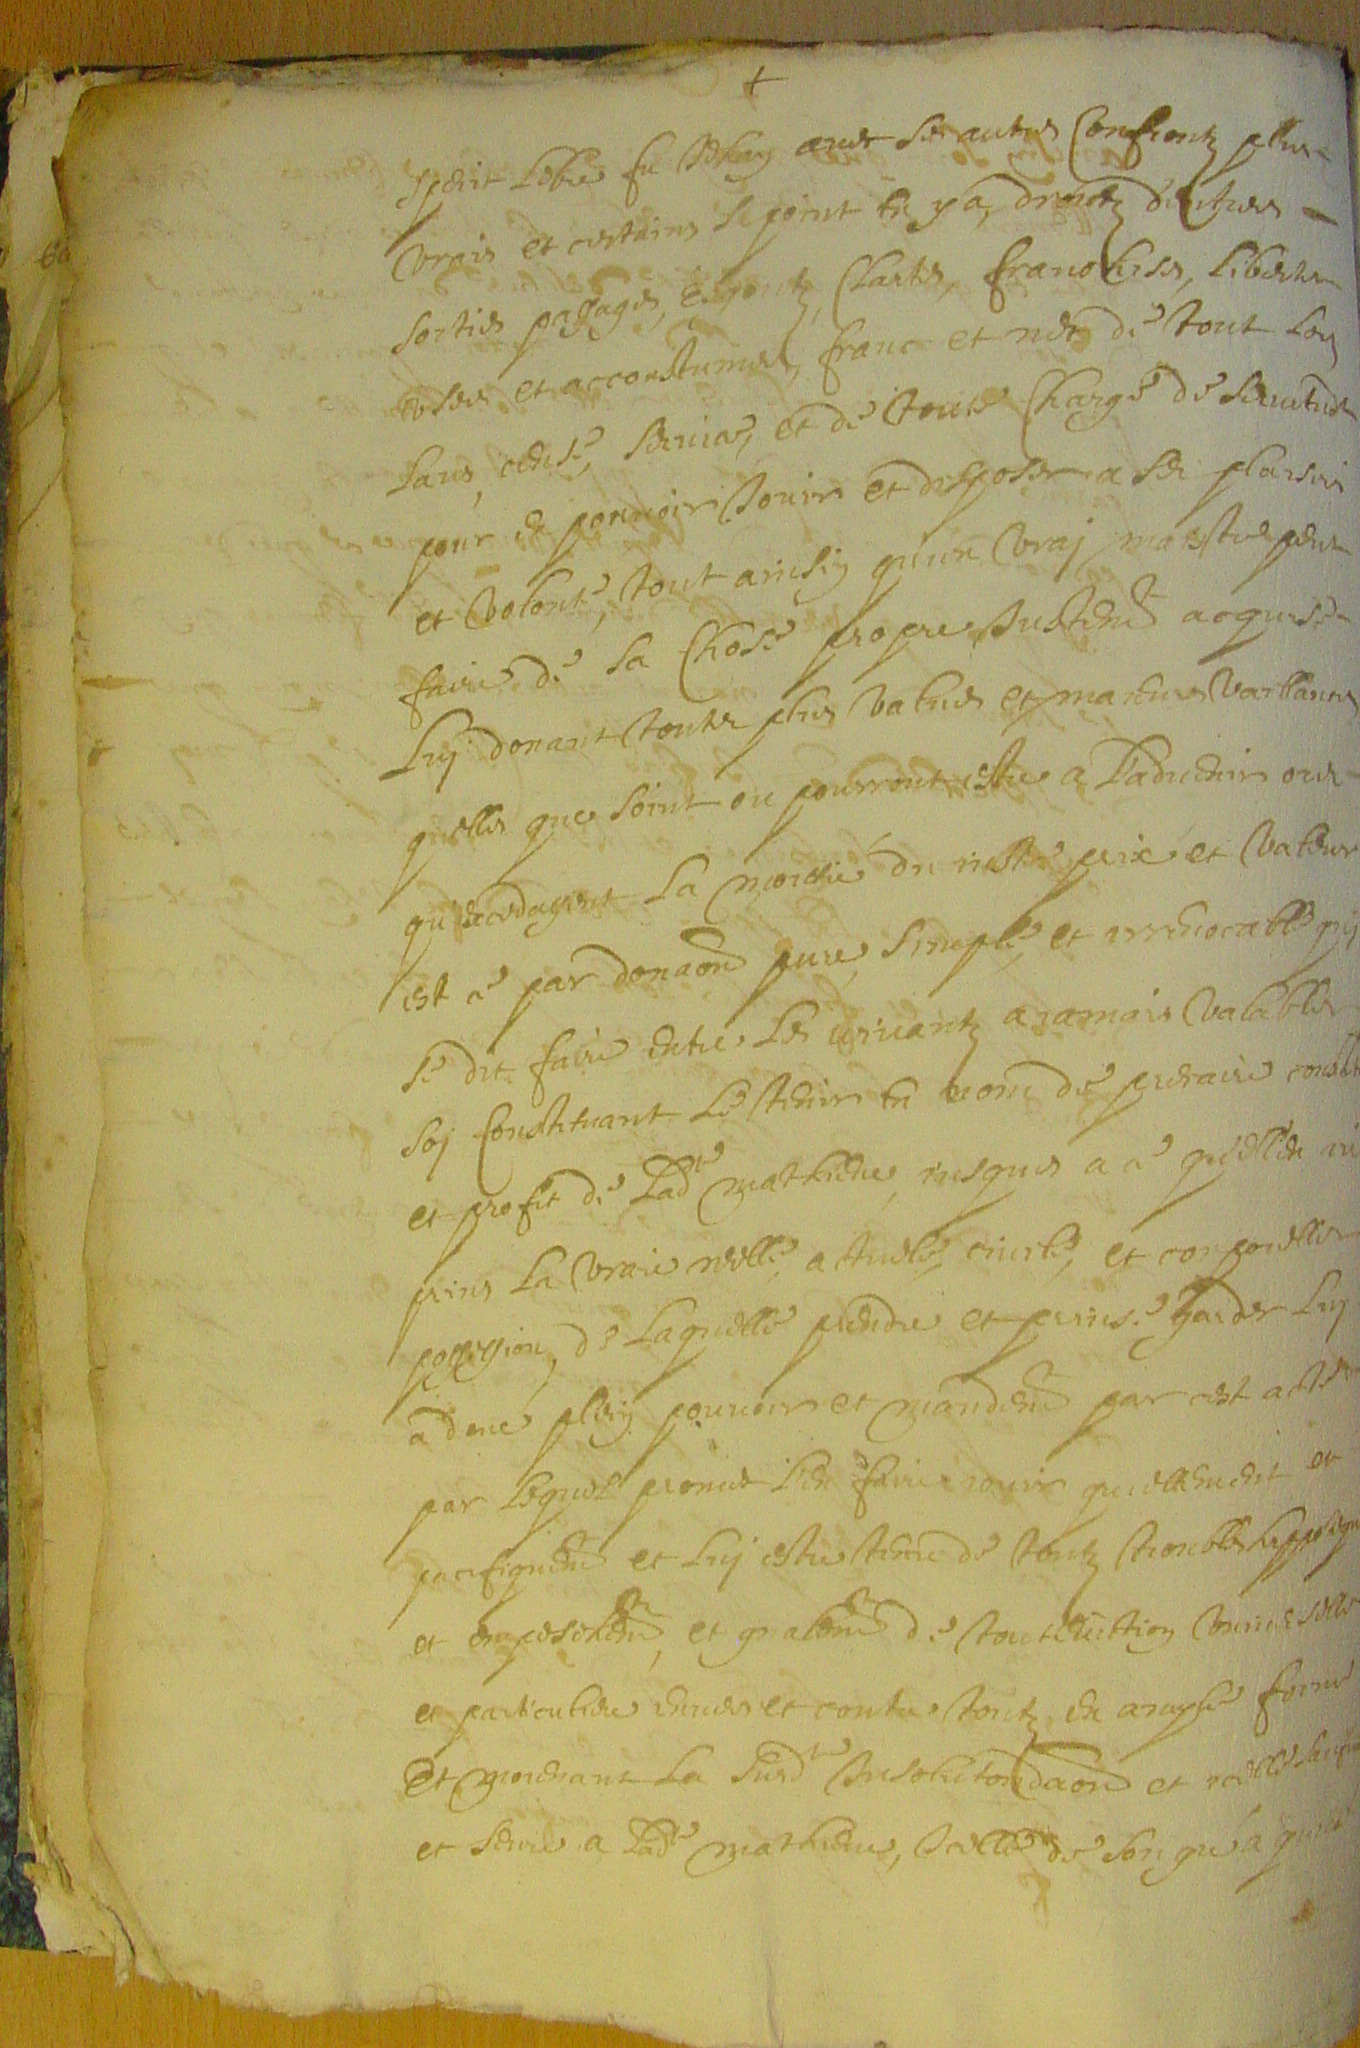 +
sperit Lebre fu Jehan avec ses autres Confrontz plus
vrais et certains sy point en y a, droictz d'entrees
sorties passages, esponts, Chartes, franchises, Libertes
uses et accoustumes, franc et net de tout Los
Laus, cense, servie, et de toute Charge de servitude
pour en pouvoir Jouir et disposer a ses plaisirs
et volonté, tout ainsin qu'un vraj maistre peut
faire de sa Chose propre Justemt acquise
Luj donant toutes plus values et maieures vaillances
quelles que soint ou pourront estre a L'advenir ores
qu'excedassent La moitié du juste prix et valeur
est ce par donaon pure simple et irrevocable quj
se dit faire entre Les vivantz a jamais valable
soj Constituant Le tenir en nom de precaire
et profit de Ladte mathieue, jusques a ce qu'elle en
prins La vraie reelle, actuelle, civille, et corporelle
possession, de Laquelle prendre et prinse garder Luj
a done plein pouvoir et mandemt par cest acte
par Lequel promet L'en faire jouir quiettement et
pacifiquemt et Luj estre tenu de toutz troubles
et empeschemt, et gnalemt de toute eviction universelle
et particuliere envers et contre toutz en ample forme
Et moienant La susdte Insolutondaon et
et Lad mathieue, Icelle de son gré a